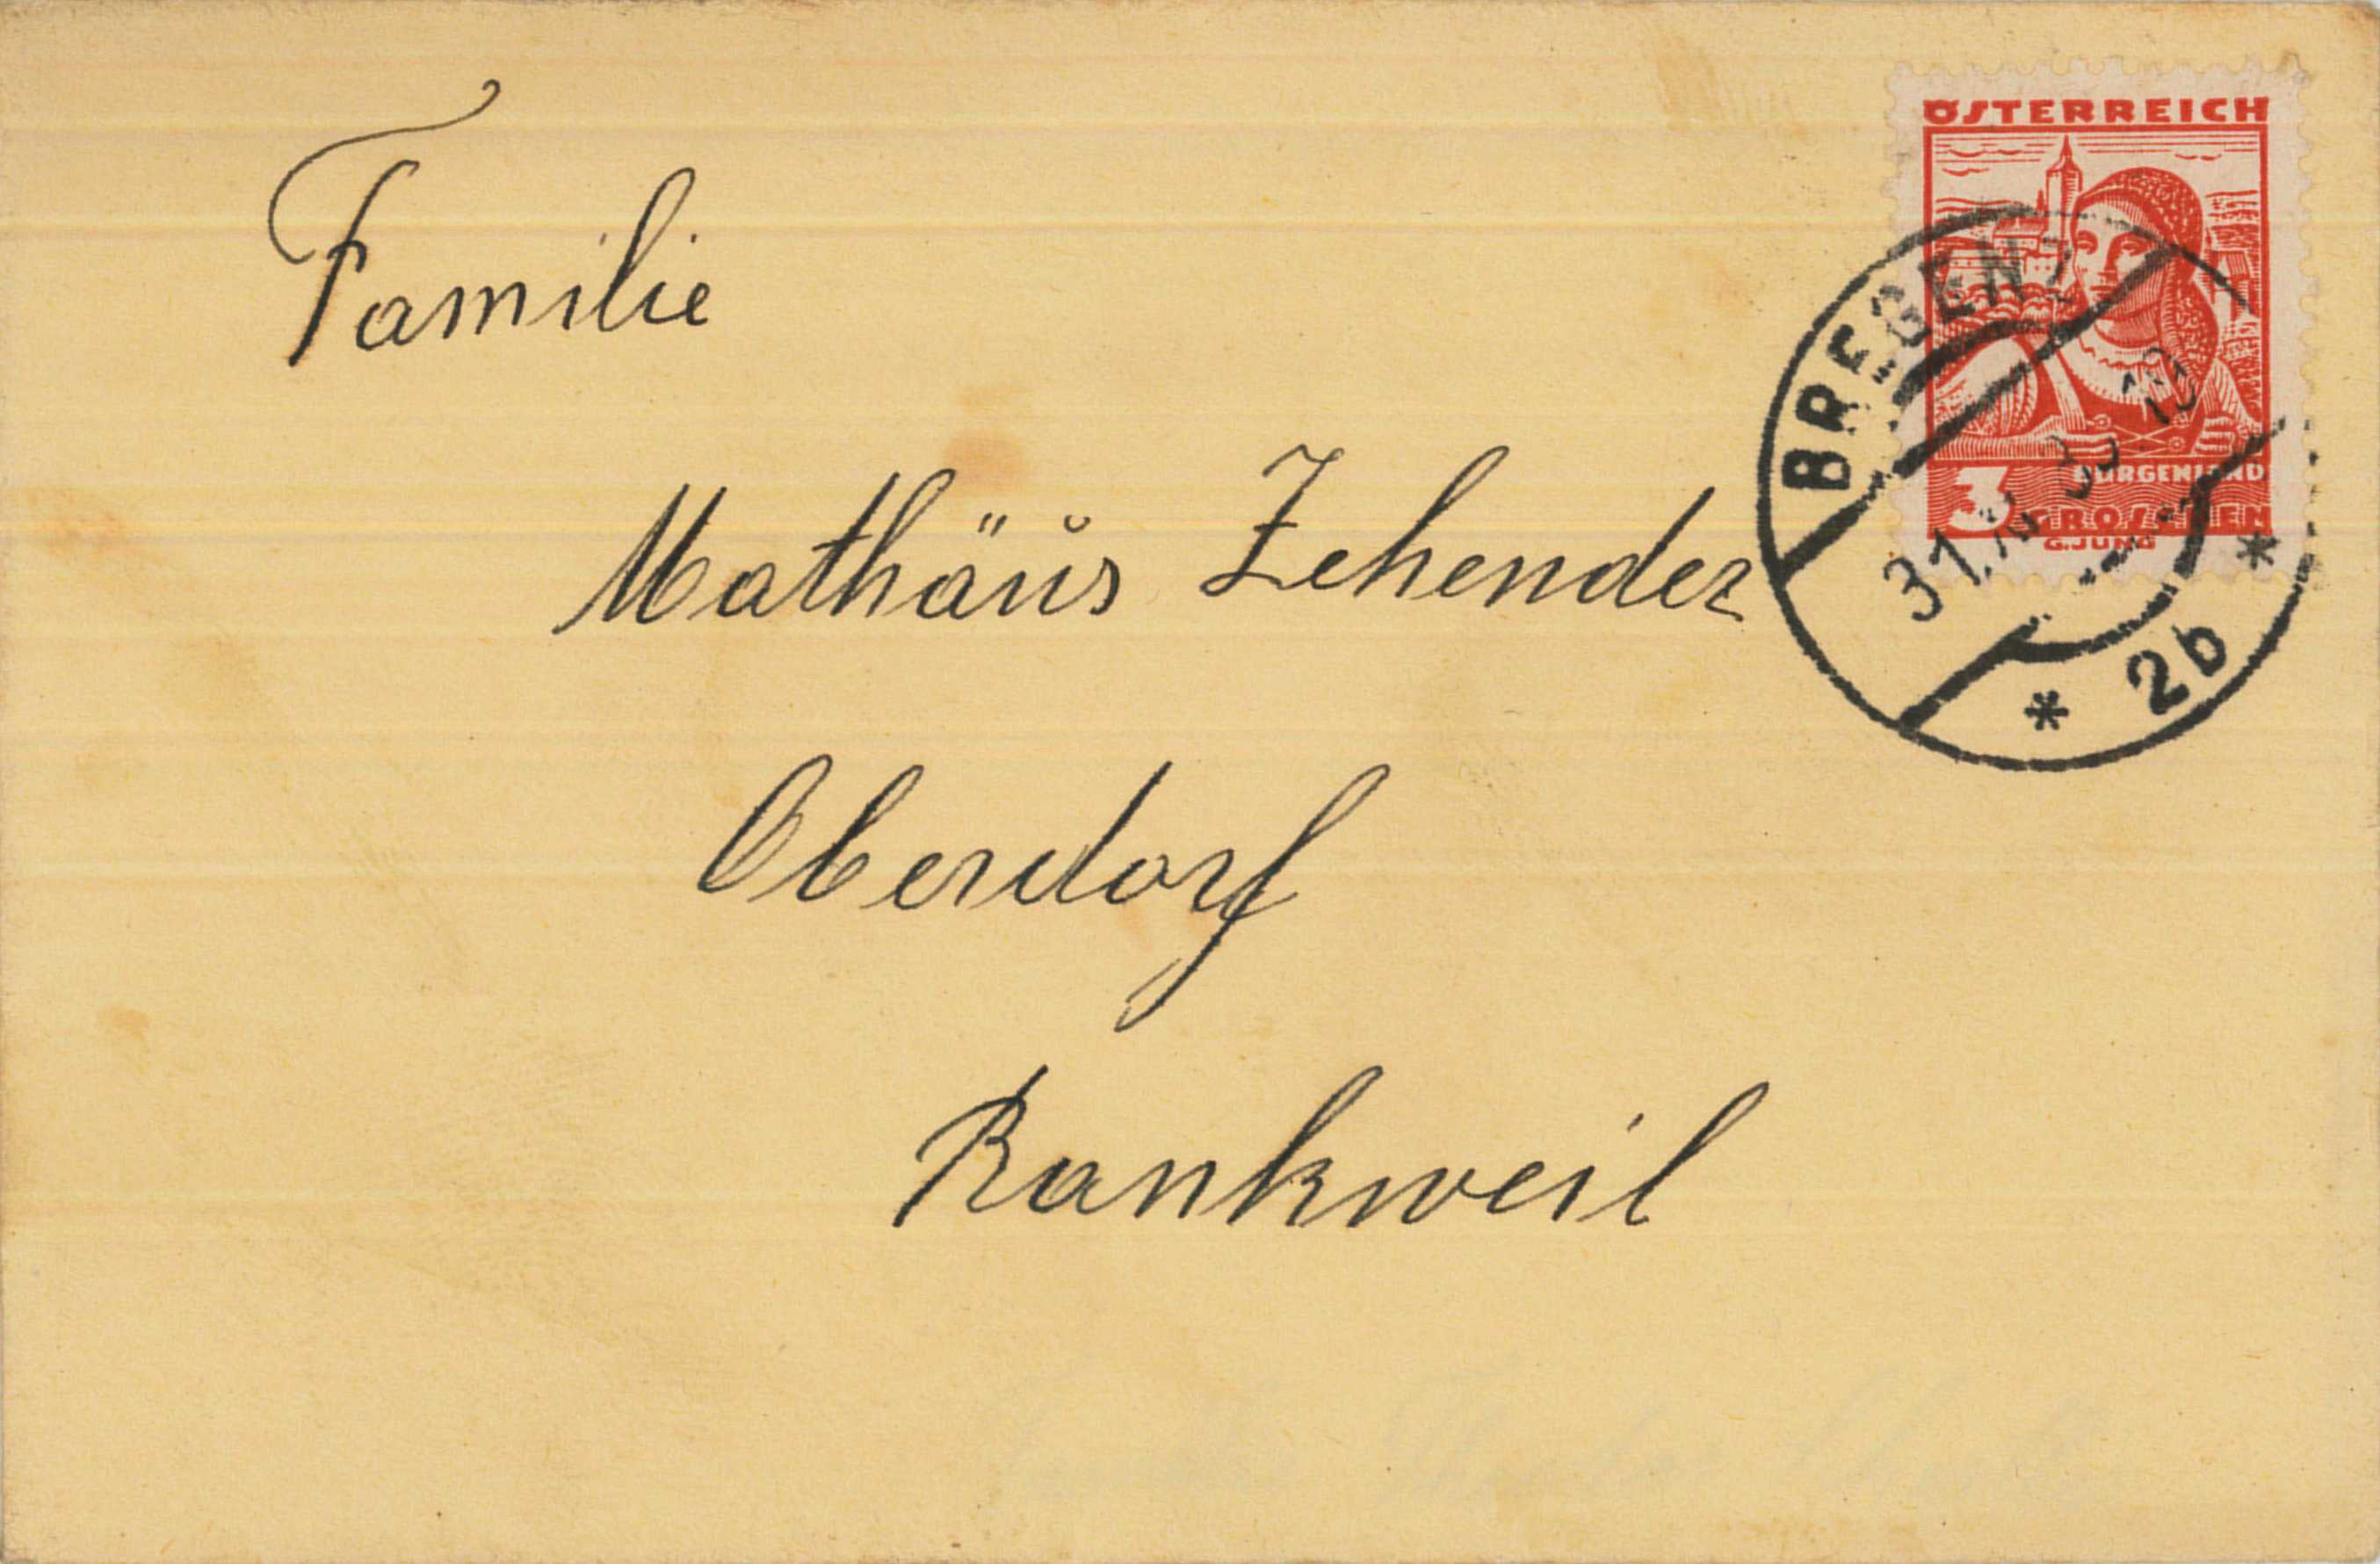 Familie
Mathäus Zehender
Oberdorf
Rankweil
ÖSTERREICH
BURGENLAND
3 GROSCHEN
G.JUNG
BREGENZ
31.
* 2b *